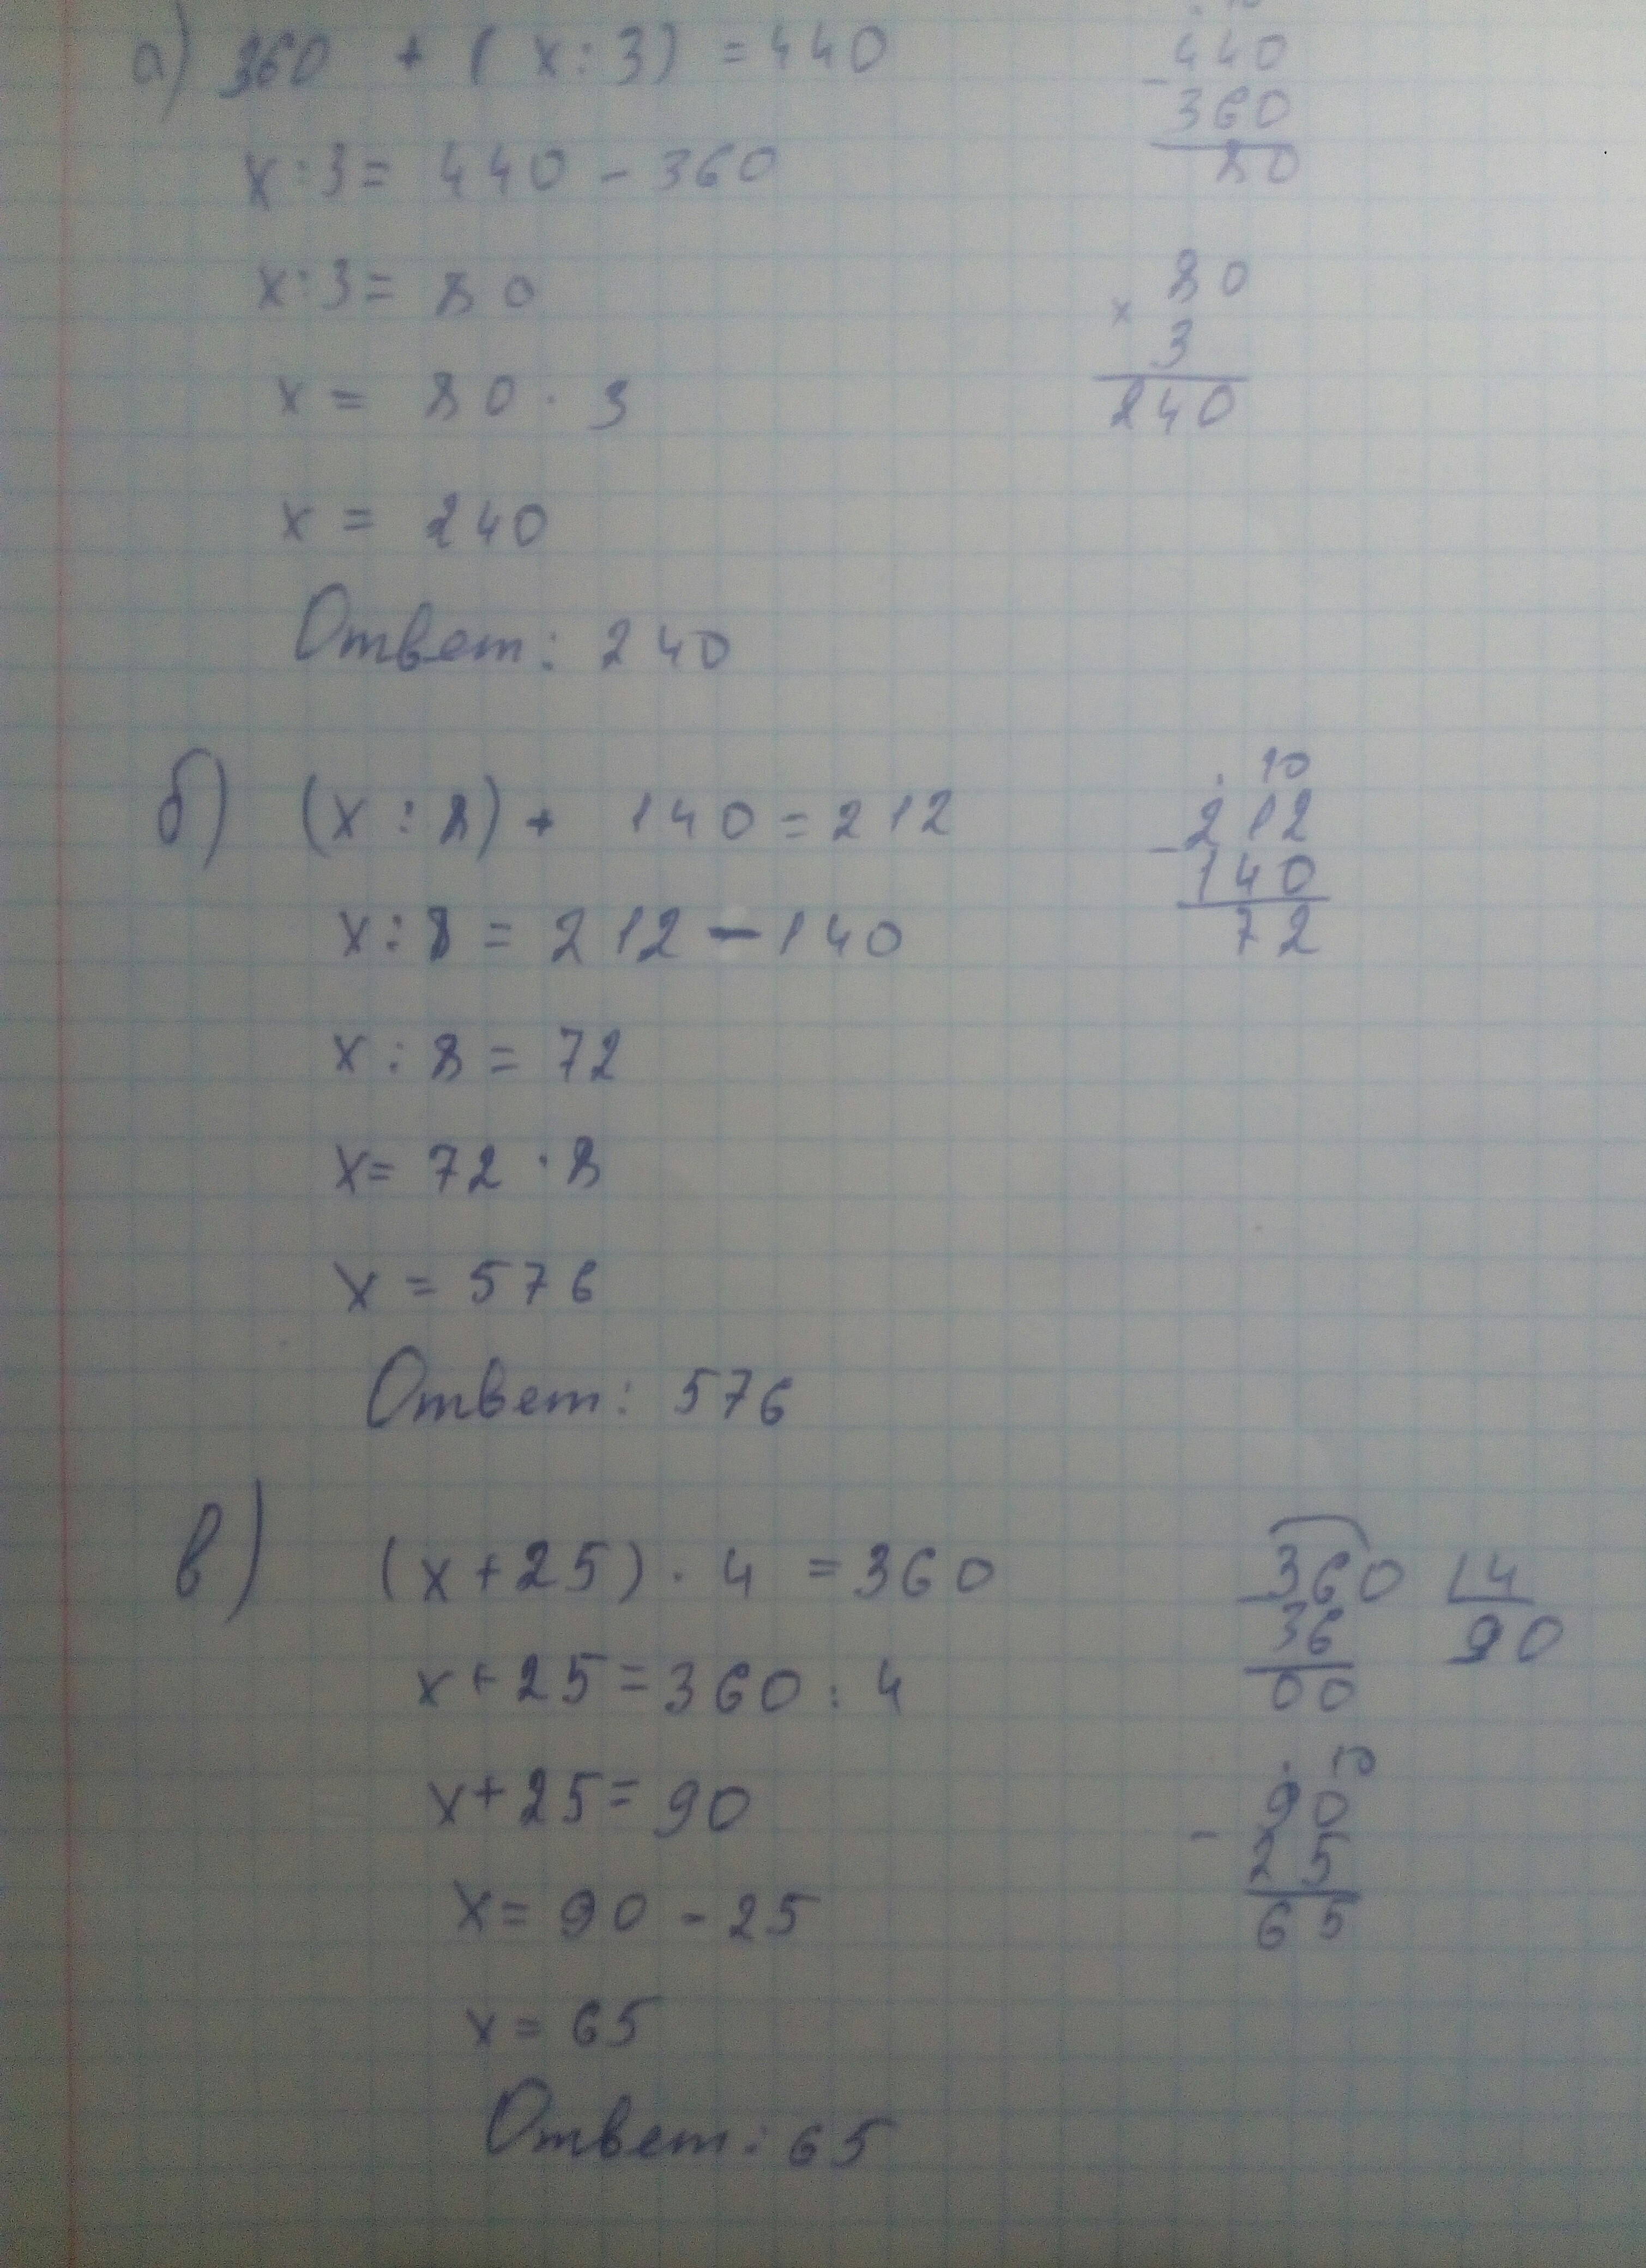 а) 360 + ( x : 3) = 440
x : 3 = 440 - 360
x : 3 = 80
x = 80 · 3
x = 240
Ответ: 240
10
440
- 360
80
80
x 3
240
б) (x : 8) + 140 = 212
x : 8 = 212 - 140
x : 8 = 72
x = 72 · 8
x = 576
Ответ: 576
. 10
212
- 140
72
в) (x + 25) · 4 = 360
x + 25 = 360 : 4
x + 25 = 90
x = 90 - 25
x = 65
Ответ: 65
360 | 4
- 36 90
00
. 10
90
- 25
65